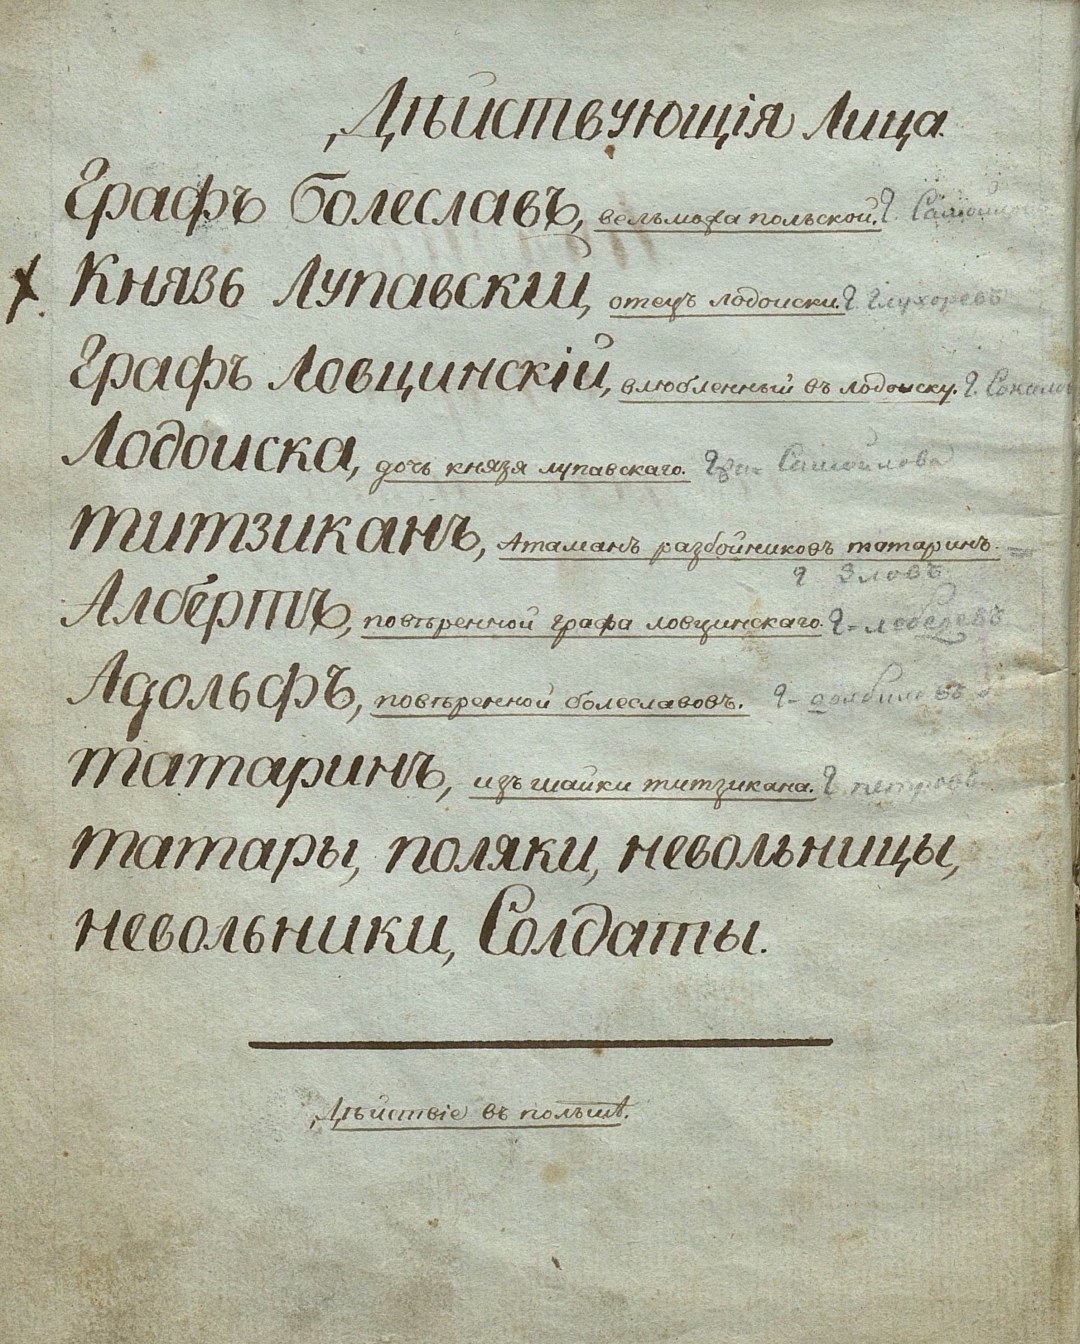 Дѣйствующія Лица
Графъ Болеславъ, вельможа польской. Г. Самойловъ
Князь Лупавскій, отецъ лодоиски. Г. Глухоревъ
Графъ Ловцинскій, влюбленный въ лодоиску. Г. Соколовъ
Лодоиска, дочь князя лупавскаго. Г-жа Самойлова
титзиканъ, Атаманъ разбойниковъ татаринъ.
Г Зловъ
Албертъ, повѣренной графа ловцинскаго. Г- лебедевъ
Адольфъ, повѣренной болеславовъ. Г-
татаринъ, изъ шайки титзикана. Г. петровъ
татары, поляки, невольницы,
невольники, Солдаты.
Дѣйствіе въ польшѣ.